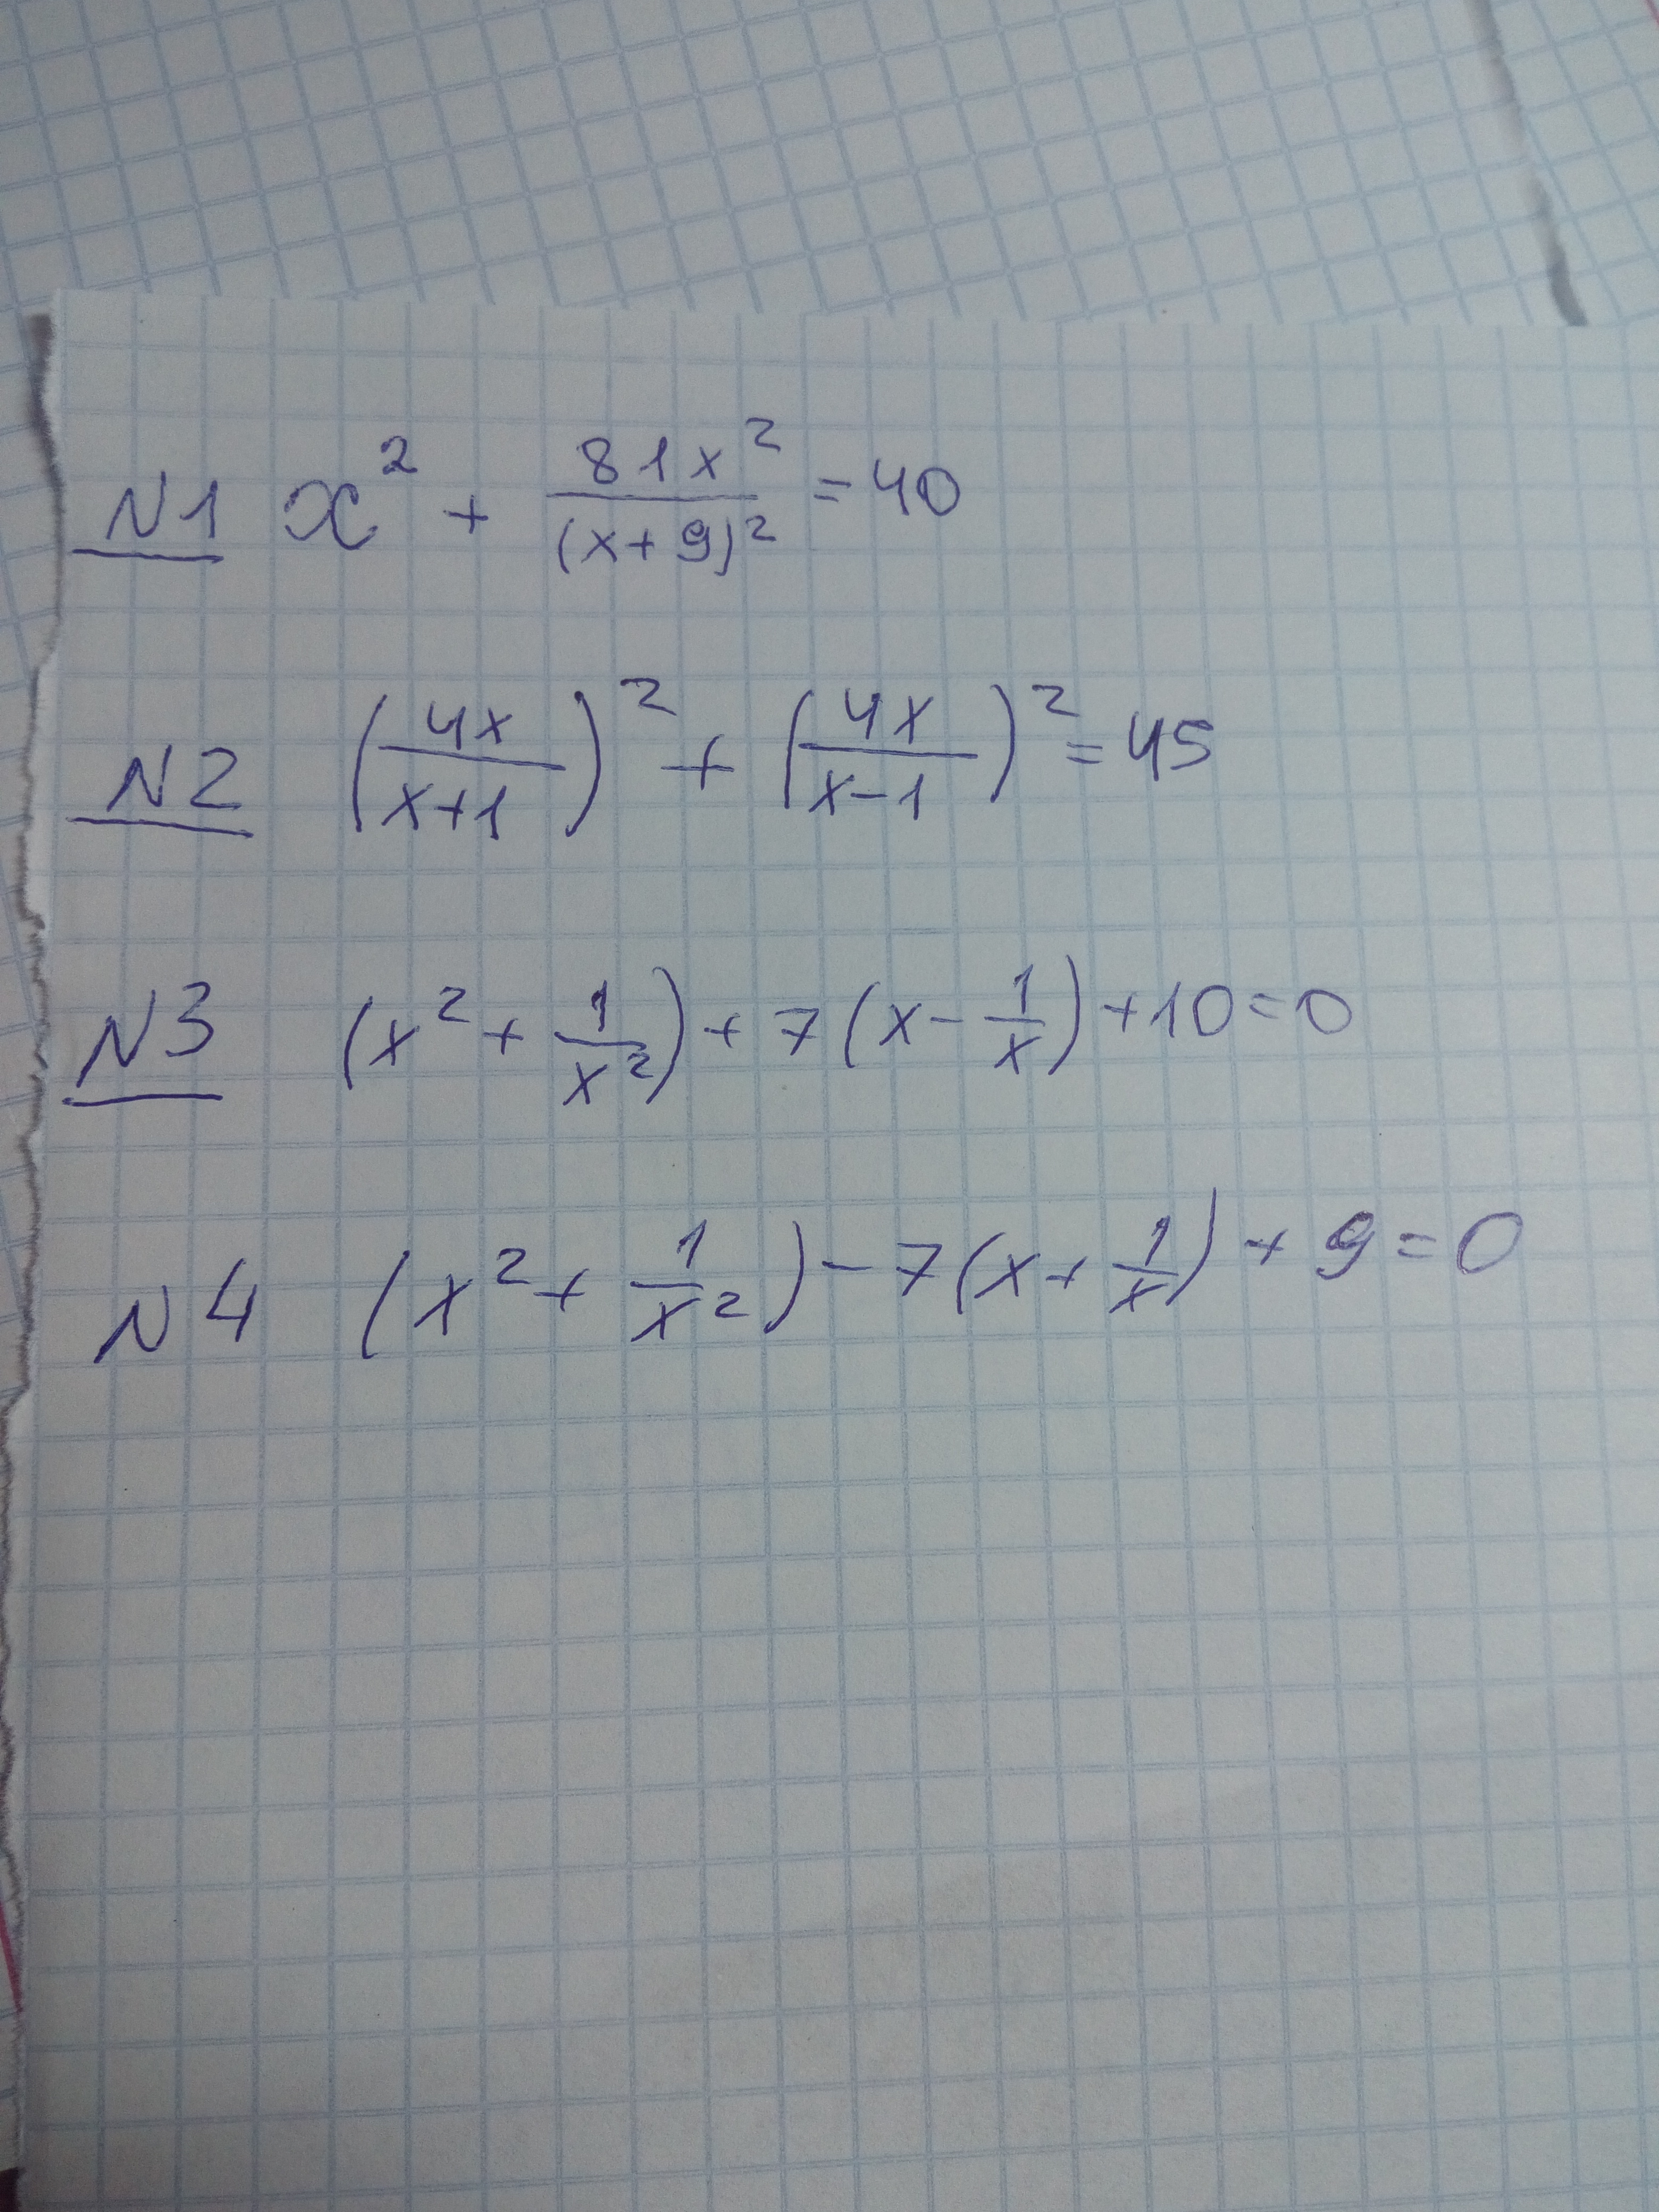 N1 x² + 81x²/(x+9)² = 40
N2 (4x/(x+1))² + (4x/(x-1))² = 45
N3 (x² + 1/x²) + 7(x - 1/x) + 10 = 0
N4 (x² + 1/x²) - 7(x + 1/x) + 9 = 0